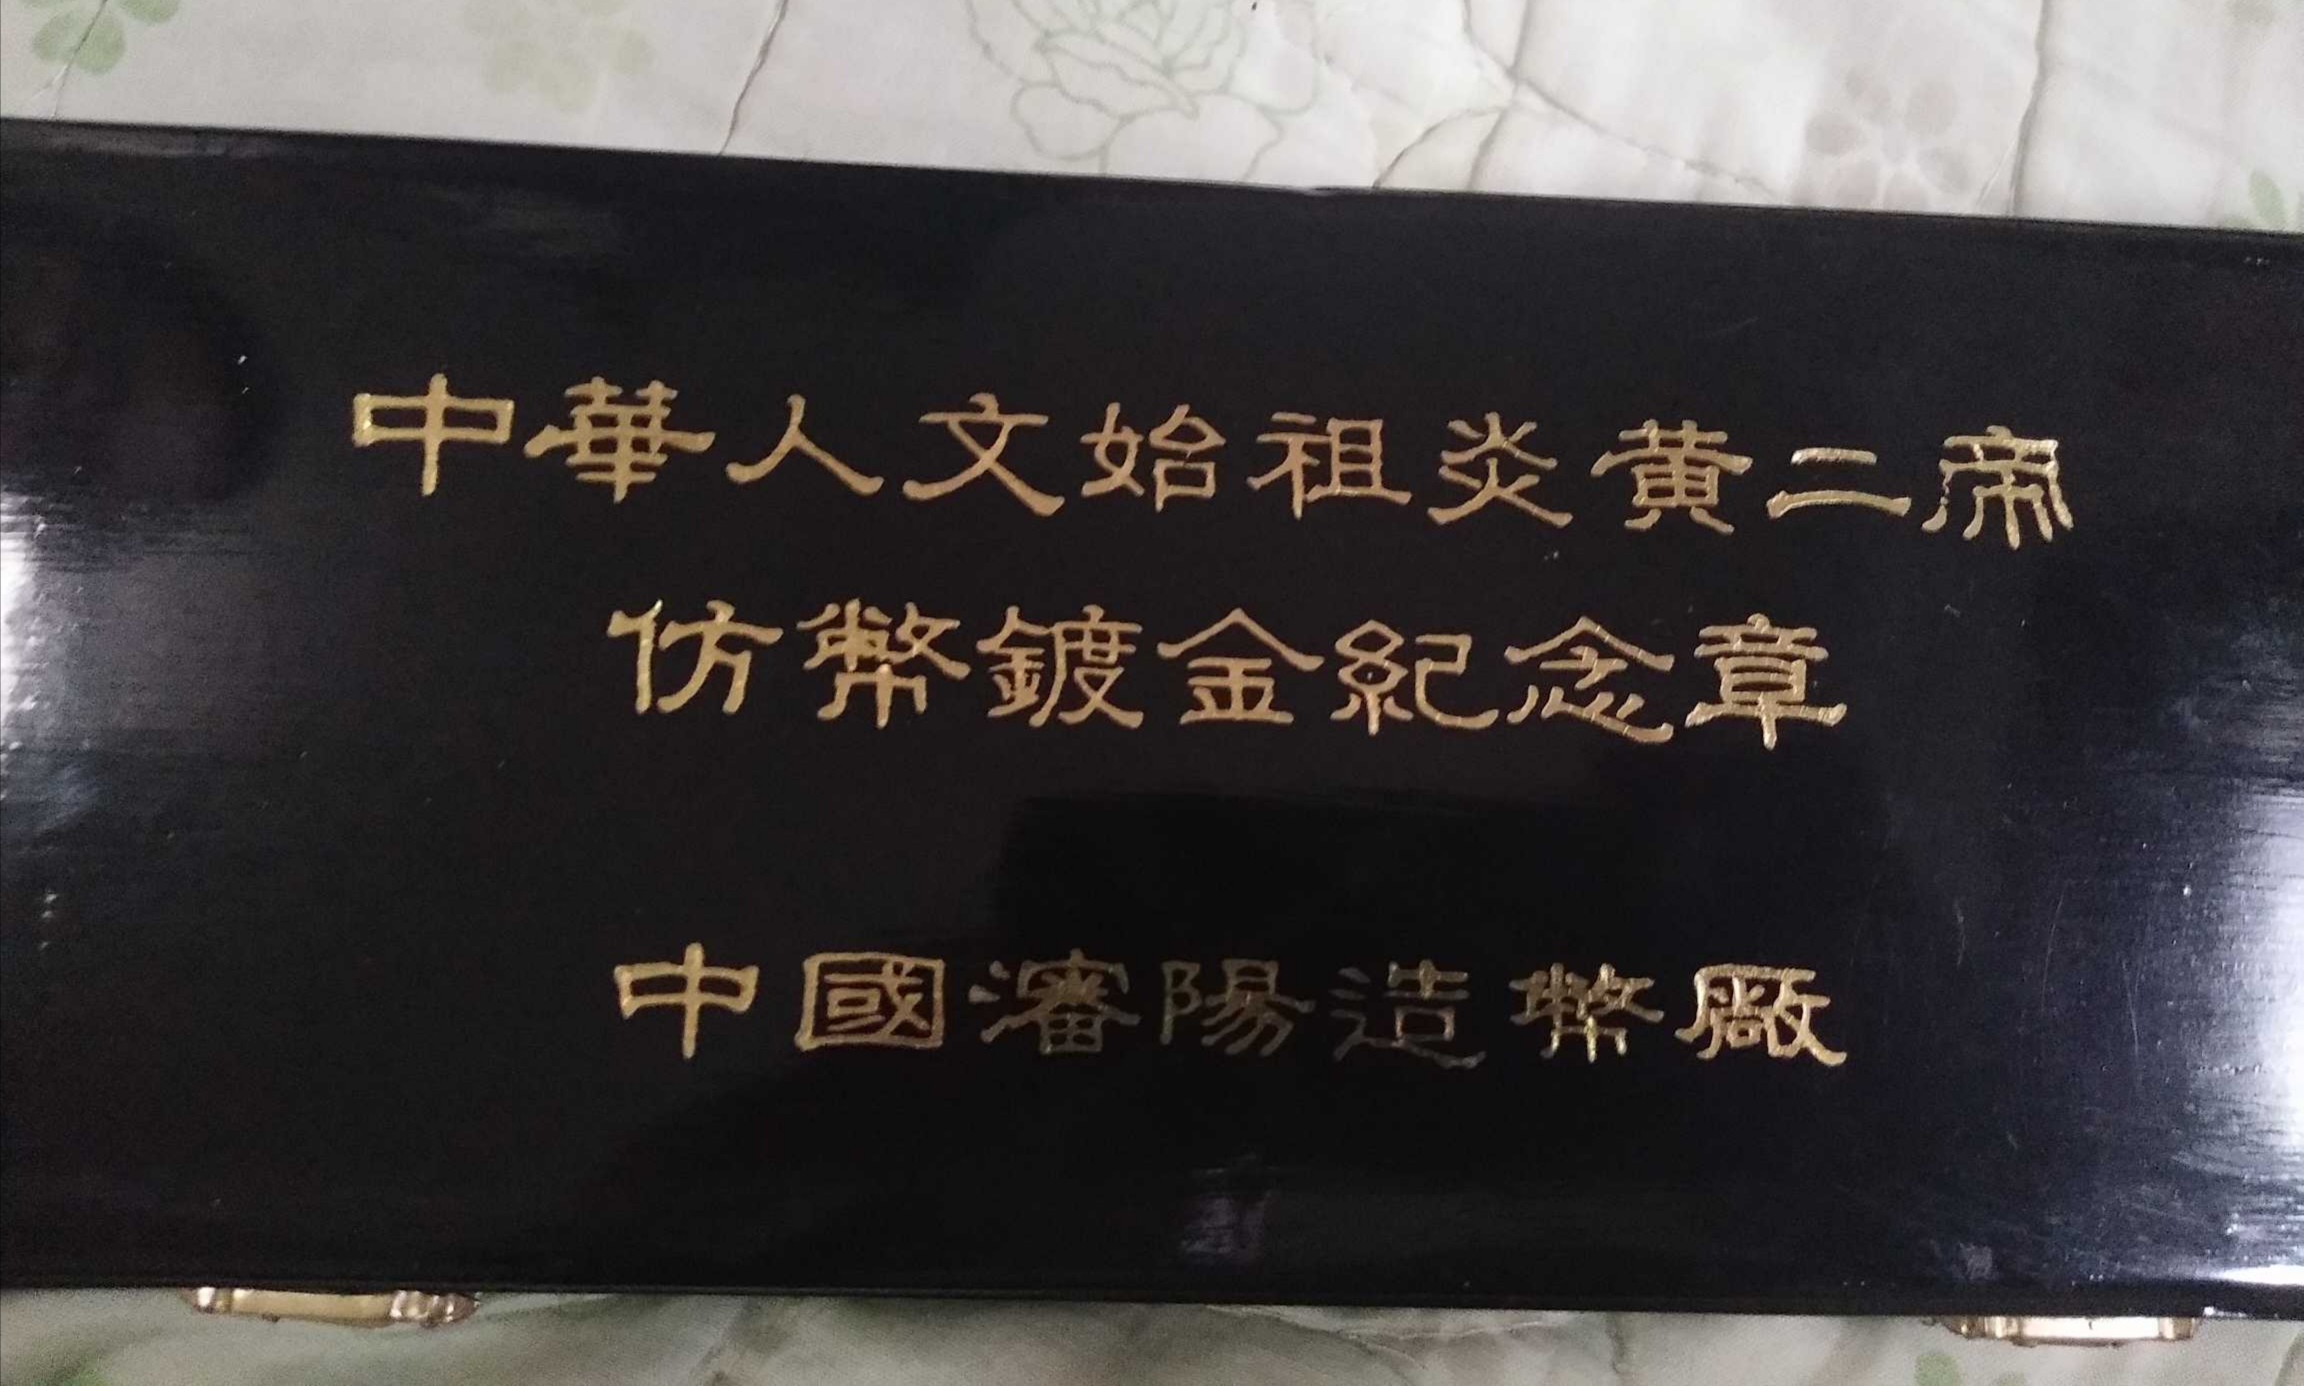 中華人文始祖炎黃二帝
仿幣鍍金紀念章
中國瀋陽造幣廠